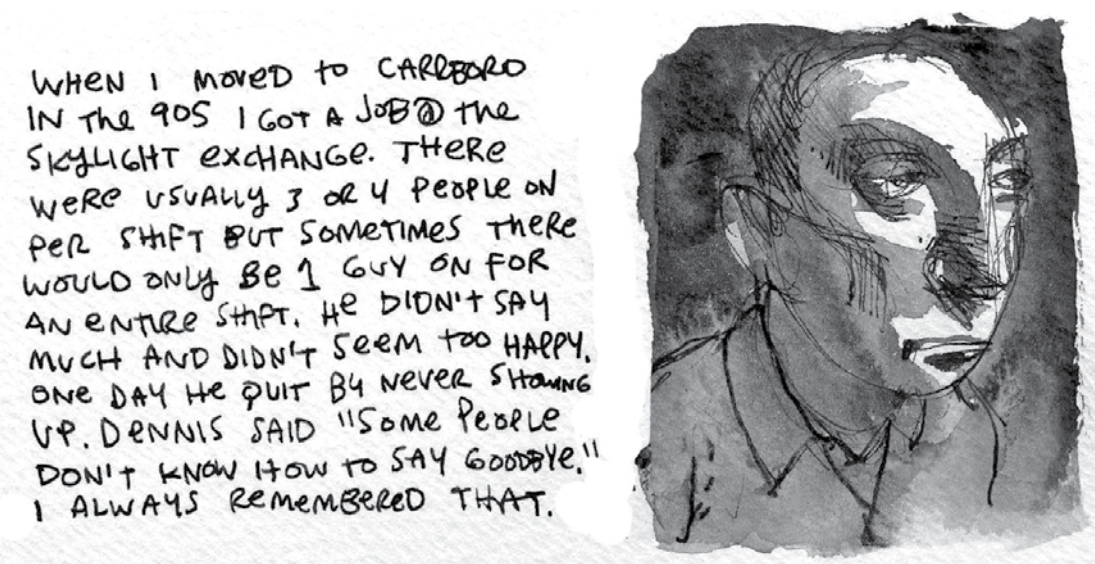 WHEN I MOVED to CARRBORO
IN The 90S I GOT A JOB@ the
SKYLIGHT exCHANGE. THERe
WeRe USUALLY 3 OR 4 PEOPLE ON
PER SHIFT BUT SOMETIMES THeRe
WOULD ONLY Be 1 GUY ON FOR
AN eNTIRe SHIFT. He DIDN't SAY
MUCH AND DIDN'T SEEM too HAPPY.
ONe DAY He QUIT BY NeVeR SHOWING
UP. DeNNIS SAID "SOMe PeOPLe
DON'T KNOW HOW to SAY GOODBYe."
I ALWAYS ReMeMBeReD THAT.